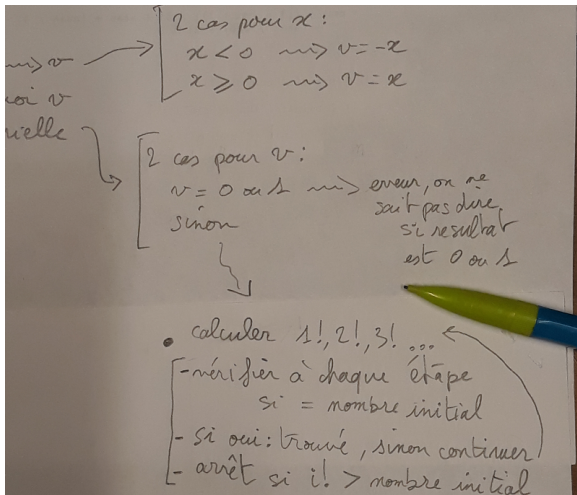 2 cas pour x :
x < 0 ⟿ v = -x
x ⩾ 0 ⟿ v = x
⟿ v
v
2 cas pour v :
v = 0 ou 1 ⟿ erreur, on ne
sait pas dire
si resultat
est 0 ou 1
sinon
• calculer 1!, 2!, 3! ...
- vérifier à chaque étape
si = nombre initial
- si oui : trouvé, sinon continuer
- arrêt si i! > nombre initial